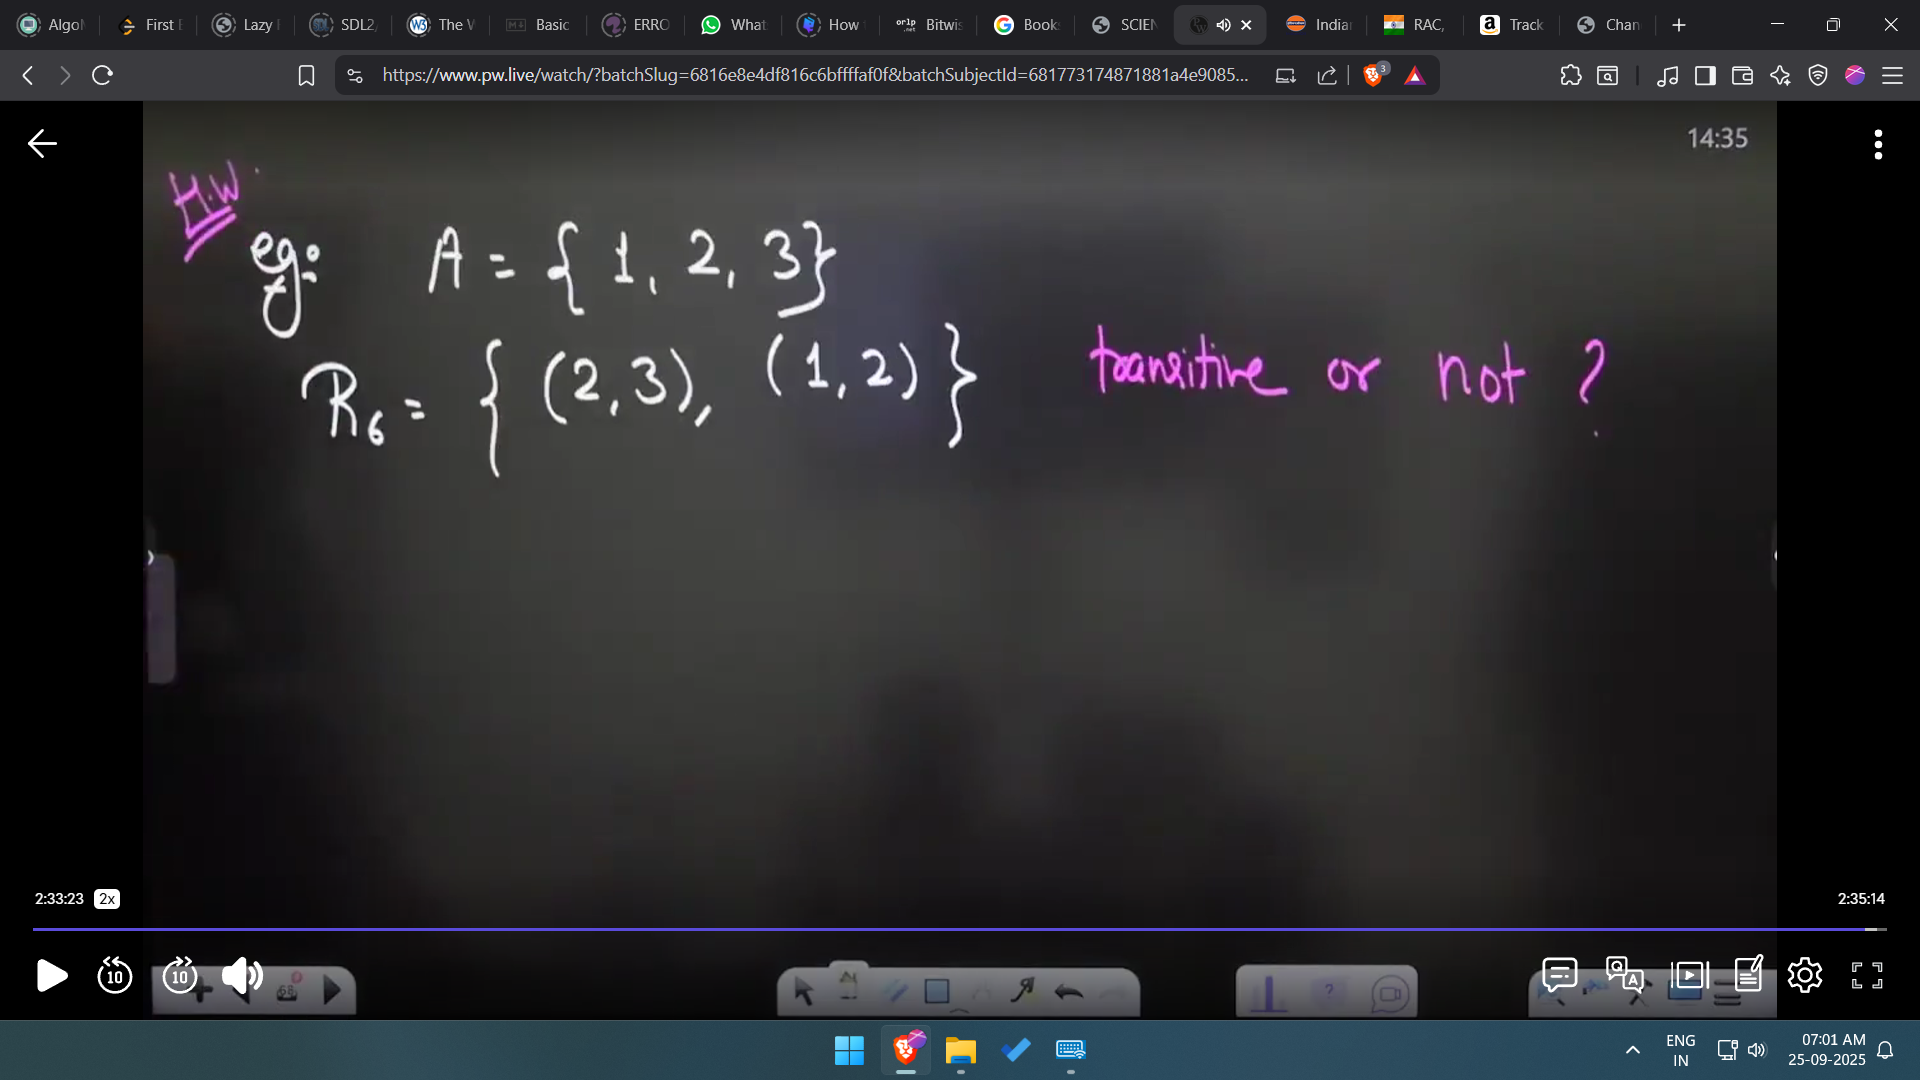 Algo
First
Lazy
SDL2,
The W
Basic
ERRO
What
How
orlp .net Bitwis
Book
SCIEN
India
RAC,
Track
Chan
https://www.pw.live/watch/?batchSlug=6816e8e4df816c6bffffaf0f&batchSubjectId=681773174871881a4e9085...
3
14:35
H.W
eg: A = { 1, 2, 3}
R₆ = { (2,3), (1,2) } transitive or not ?
2:33:23 2x
2:35:14
10 10
68
ENG
IN
07:01 AM
25-09-2025